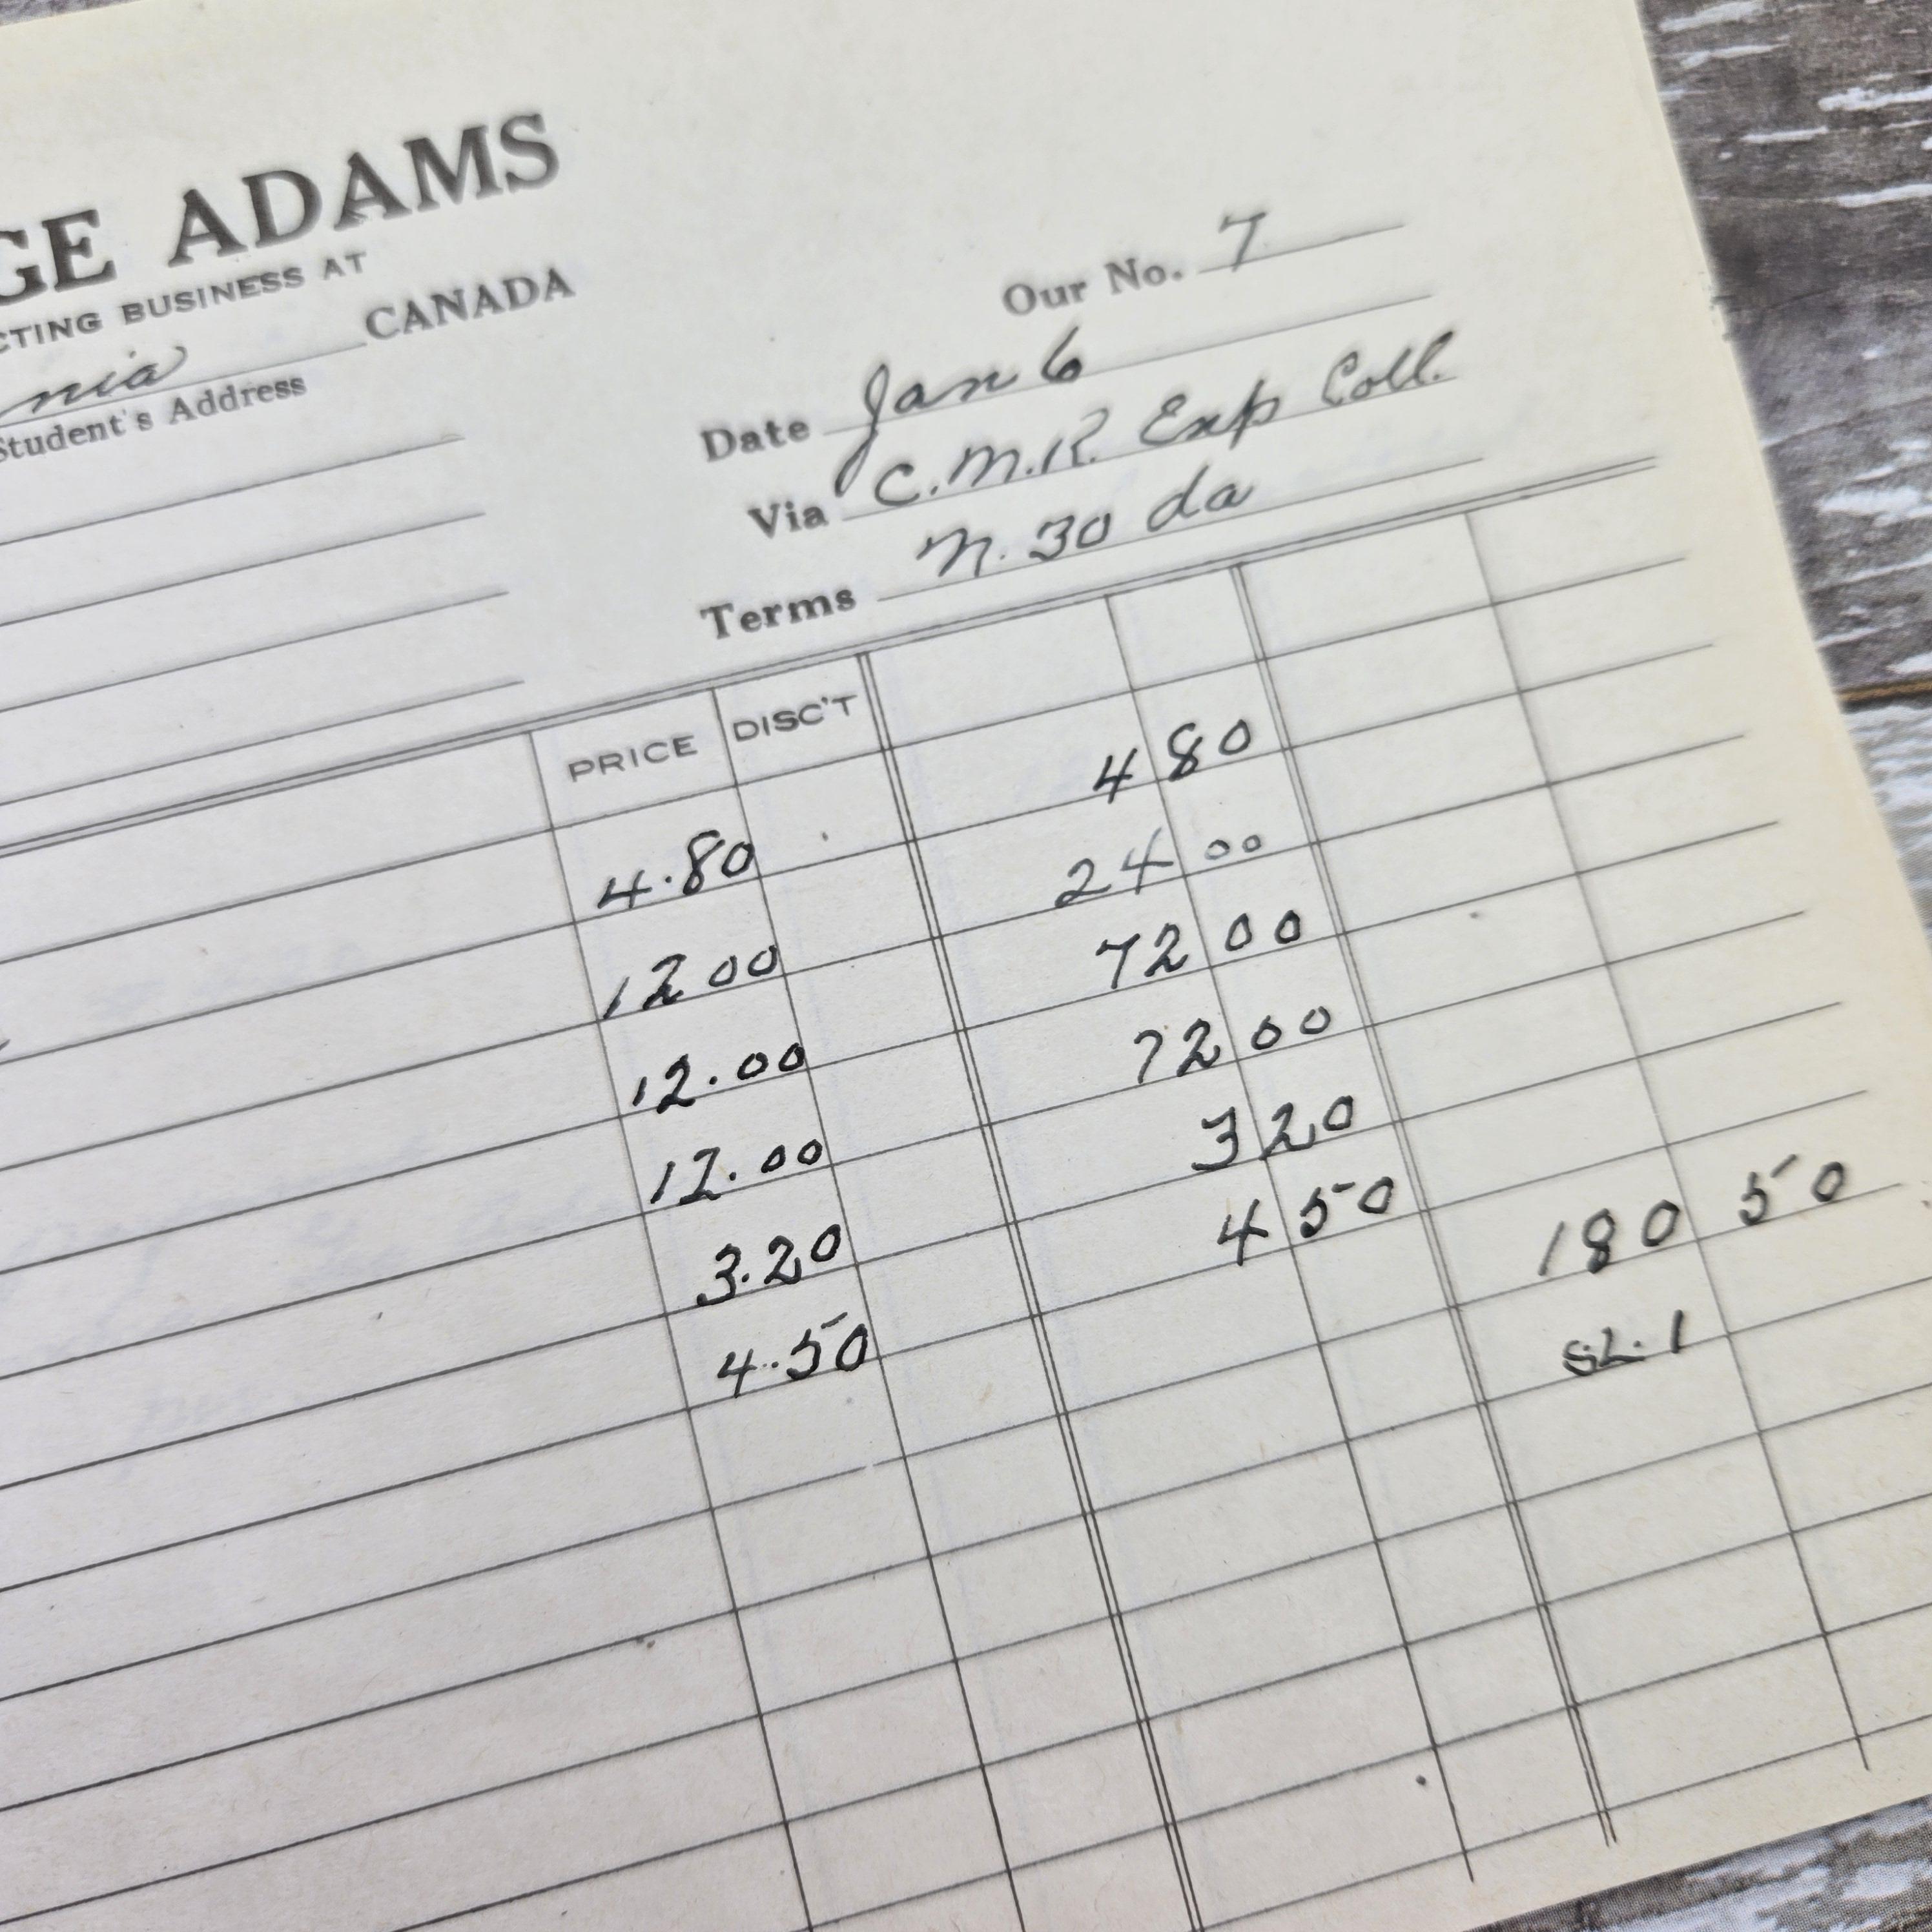 GE ADAMS
CTING BUSINESS AT
nia CANADA
Student's Address
Our No. 7
Date Jan 6
Via C.M.R. Exp Coll.
Terms n. 30 da
PRICE DISC'T
4.80 4 80
12 00 24 00
12.00 72 00
12.00 72 00
3.20 3 20
4.50 4 50 180 50
SL. 1